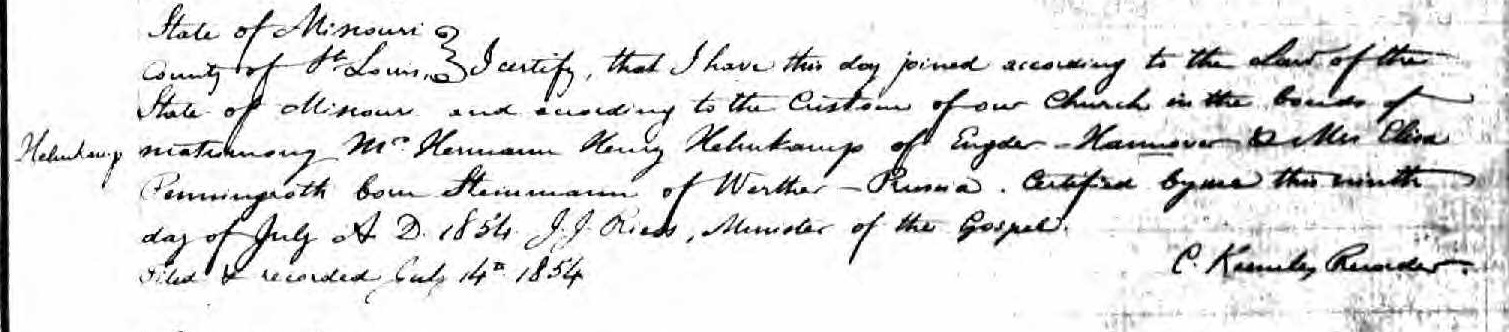 State of Missouri
County of St Louis, } I certify, that I have this day joined according to the Law of the
State of Missouri and according to the Custom of our Church in the bonds of
Helmkamp matrimony Mr Hermann Henry Helmkamp of Engder - Hannover & Mrs Elisa
Penningroth born Steinmann of Werther - Prussia. Certified by me this ninth
day of July A. D. 1854 J. J. Riess, Minister of the Gospel.
Filed & recorded July 14th 1854
C. Recorder.